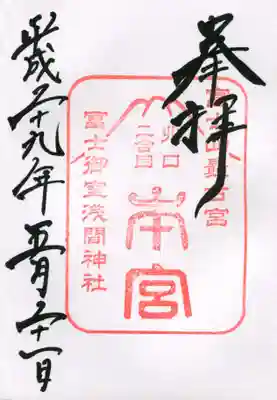 奉拝
山最古宮
口
二合目
本宮
冨士御室浅間神社
平成二十九年五月二十一日